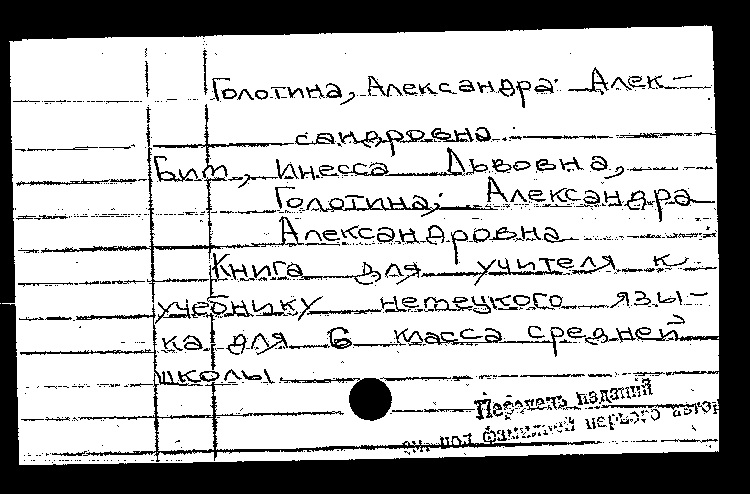 Голотина, Александра Алек-
сандровна.
Бим, Инесса Львовна,
Голотина, Александра
Александровна
Книга для учителя к
учебнику немецкого язы-
ка для 6 класса средней
школы.
Перечень изданий
см. под фамилией первого автор